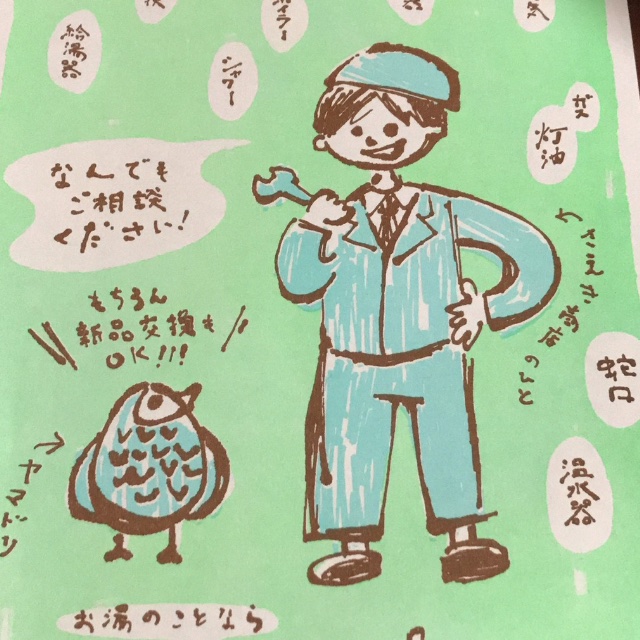 給湯器
シャワー
ガス
灯油
なんでも
ご相談
ください!
もちろん
新品交換も
OK!!!
さえき商店のひと
蛇口
温水器
ヤマドリ
お湯のことなら